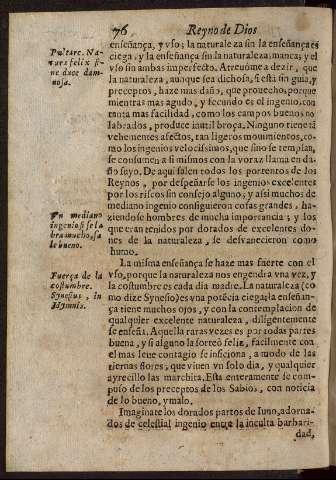 76 Reyno de Dios
enseñança, y vso; la naturaleza sin la enseñança es
ciega, y la enseñança sin la naturaleza, manca; y el
vso sin ambas imperfecto. Atreuome a dezir, que
la naturaleza, aunque sea dichosa, si està sin guia, y
preceptos, haze mas daño, que prouecho, porque
mientras mas agudo, y fecundo es el ingenio, con
tanta mas facilidad, como los campos buenos no
labrados, produce inutil broça. Ninguno tiene tã
vehementes afectos, tan ligeros mouimientos, co-
mo los ingenios velocissimos, que sino se templan,
se consumen a si mismos con la voraz llama en da-
ño suyo. De aqui salen todos los portentos de los
Reynos, por despeñarse los ingenios excelentes
por los riscos sin consejo alguno, y assi muchos de
mediano ingenio consiguieron cosas grandes, ha-
ziendose hombres de mucha importancia; y los
que eran tenidos por dorados de excelentes do-
nes de la naturaleza, se desvanecieron como
humo.
La misma enseñança se haze mas fuerte con el
vso, porque la naturaleza nos engendra vna vez, y
la costumbre es cada dia madre. La naturaleza (co
mo dize Synesio) es vna potẽcia ciega; la enseñan-
ça tiene muchos ojos, y con la contemplacion de
qualquier excelente naturaleza, diligentemente
se enseña. Aquella raras vezes es por todas partes
buena, y si alguno la sorteò feliz, facilmente con
el mas leue contagio se inficiona, a modo de las
tiernas flores, que viuen vn solo dia, y qualquier
ayrecillo las marchita. Esta enteramente se com-
puso de los preceptos de los Sabios, con noticia
de lo bueno, y malo.
Imaginate los dorados partos de Iuno, adorna-
dos de celestial ingenio entre la inculta barbari-
dad,
Plutarc. Na-
tura felix si-
ne duce dam-
nosa.
Vn mediano
ingenio si se la
bra mucho, sa
le bueno.
Fuerça de la
costumbre.
Synesius, in
Hymnis.